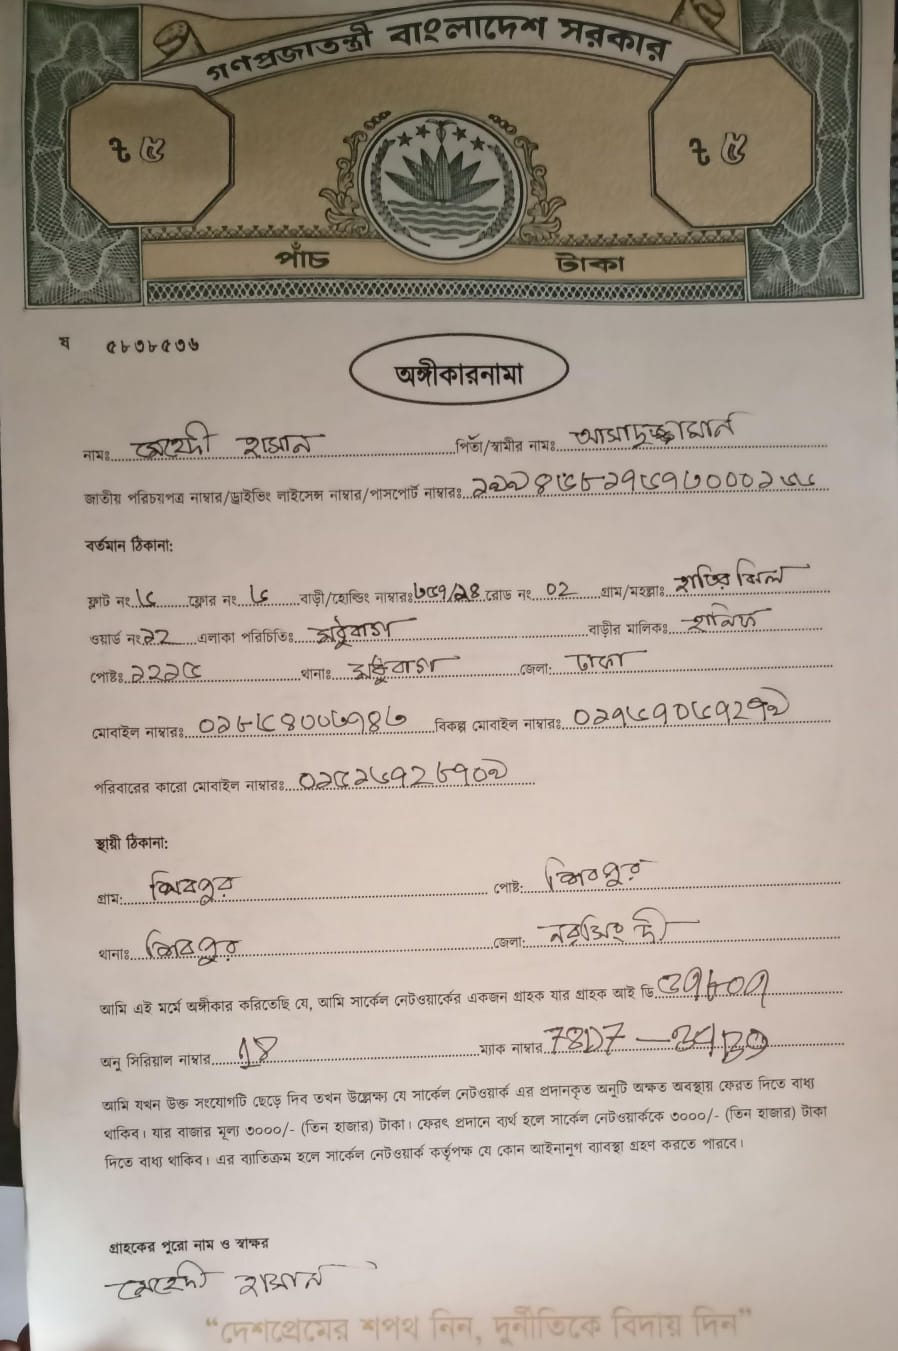 গণপ্রজাতন্ত্রী বাংলাদেশ সরকার
৳ ৫ ৳ ৫
পাঁচ টাকা
ষ ৫৮৩৮৫৩৬
অঙ্গীকারনামা
নামঃ মেহেদী হাসান পিতা/স্বামীর নামঃ আসাদুজ্জামান
জাতীয় পরিচয়পত্র নাম্বার/ড্রাইভিং লাইসেন্স নাম্বার/পাসপোর্ট নাম্বারঃ
বর্তমান ঠিকানা:
ফ্লাট নং ফ্লোর নং বাড়ী/হোল্ডিং নাম্বারঃ রোড নং ০২ গ্রাম/মহল্লাঃ হাতির ঝিল
ওয়ার্ড নংঃ ২২ এলাকা পরিচিতিঃ বাড়ীর মালিকঃ হানিফ
পোষ্টঃ থানাঃ জেলা: ঢাকা
মোবাইল নাম্বারঃ বিকল্প মোবাইল নাম্বারঃ
পরিবারের কারো মোবাইল নাম্বারঃ
স্থায়ী ঠিকানা:
গ্রাম: শিবপুর পোষ্ট: শিবপুর
থানাঃ শিবপুর জেলা: নরসিংদী
আমি এই মর্মে অঙ্গীকার করিতেছি যে, আমি সার্কেল নেটওয়ার্কের একজন গ্রাহক যার গ্রাহক আই ডি
অনু সিরিয়াল নাম্বার ম্যাক নাম্বার
আমি যখন উক্ত সংযোগটি ছেড়ে দিব তখন উল্লেক্ষ্য যে সার্কেল নেটওয়ার্ক এর প্রদানকৃত অনুটি অক্ষত অবস্থায় ফেরত দিতে বাধ্য
থাকিব। যার বাজার মূল্য ৩০০০/- (তিন হাজার) টাকা। ফেরৎ প্রদানে ব্যর্থ হলে সার্কেল নেটওয়ার্ককে ৩০০০/- (তিন হাজার) টাকা
দিতে বাধ্য থাকিব। এর ব্যাতিক্রম হলে সার্কেল নেটওয়ার্ক কর্তৃপক্ষ যে কোন আইনানুগ ব্যাবস্থা গ্রহণ করতে পারবে।
গ্রাহকের পুরো নাম ও স্বাক্ষর
মেহেদী হাসান
“দেশপ্রেমের শপথ নিন, দুর্নীতিকে বিদায় দিন”